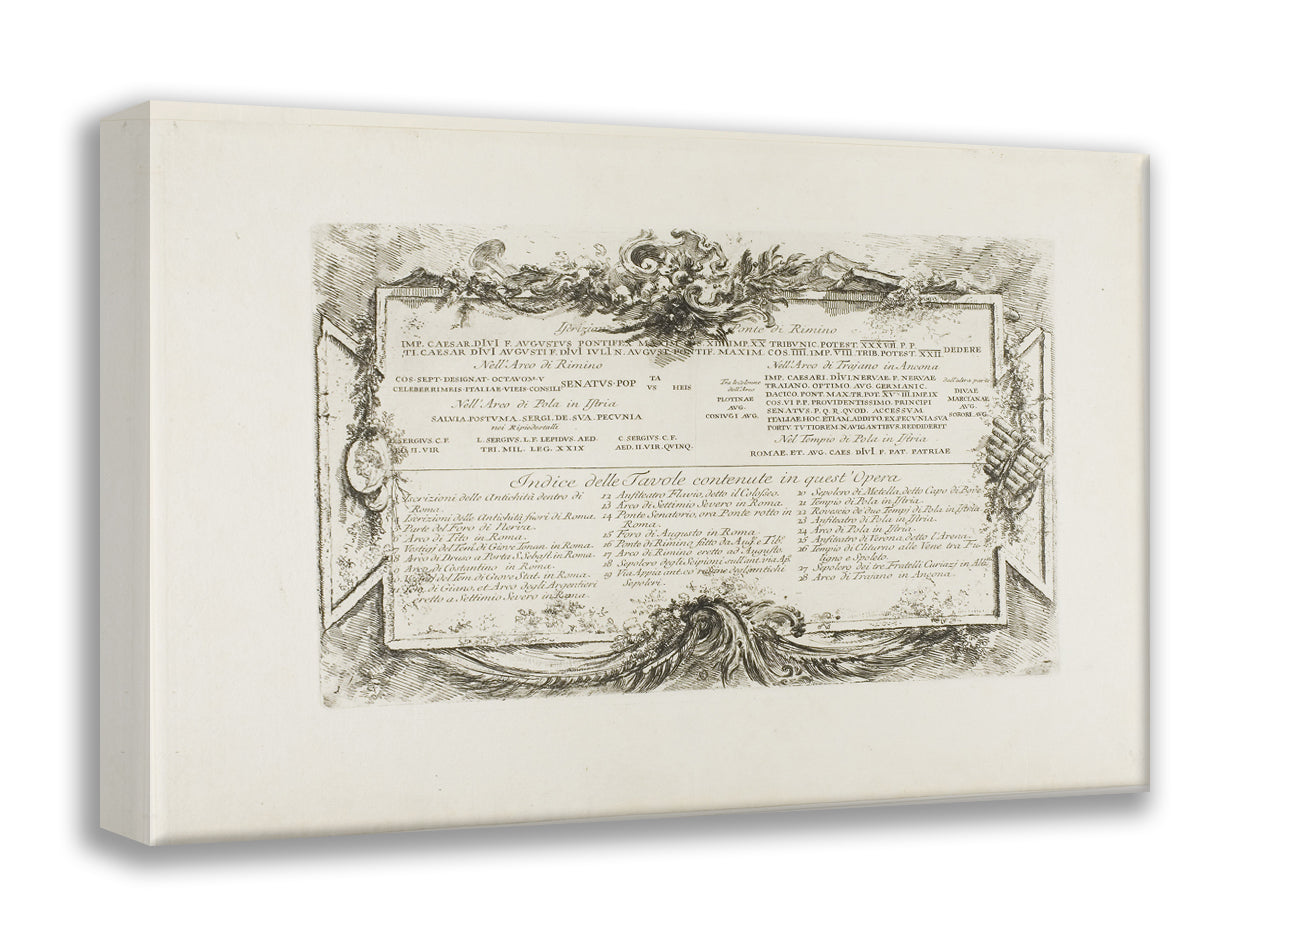 Iscrizion Ponte di Rimino
IMP. CAESAR. DIVI F. AVGVSTVS PONTIFEX MAXIM. COS. XIII IMP. XX TRIBVNIC. POTEST. XXXVII. P. P.
TI. CAESAR DIVI AVGVSTI F. DIVI IVLI N. AVGVST. PONTIF. MAXIM. COS. IIII. IMP. VIII. TRIB. POTEST. XXII DEDERE
Nell'Arco di Rimino
COS·SEPT·DESIGNAT·OCTAVOM·V
CELEBERRIMEIS·ITALIAE·VIEIS·CONSILI SENATVS·POP
TA
VS HEIS
Nell'Arco di Pola in Istria
SALVIA. POSTVMA. SERGI. DE. SVA. PECVNIA
nei Ripiedestalli
SERGIVS. C. F. L. SERGIVS. L. F. LEPIDVS. AED. C. SERGIVS. C. F.
II. VIR TRI. MIL. LEG. XXIX AED. II. VIR. QVINQ.
Nell'Arco di Trajano in Ancona
Tra le colonne
dell'Arco
PLOTINAE
AVG.
CONIVGI AVG.
IMP. CAESARI. DIVI. NERVAE. F. NERVAE
TRAIANO. OPTIMO. AVG. GERMANIC.
DACICO. PONT. MAX. TR. POT. XVIIII. IMP. IX
COS. VI. P. P. PROVIDENTISSIMO. PRINCIPI
SENATVS. P. Q. R. QVOD. ACCESSVM
ITALIAE. HOC. ETIAM. ADDITO. EX. PECVNIA. SVA
PORTV. TVTIOREM. NAVIGANTIBVS. REDDIDERIT
dall'altra parte
DIVAE
MARCIANAE
AVG.
SORORI. AVG.
Nel Tempio di Pola in Istria
ROMAE. ET. AVG. CAES DIVI F. PAT. PATRIAE
Indice delle Tavole contenute in quest'Opera
Iscrizioni delle Antichità dentro di
Roma.
Iscrizioni delle Antichità fuori di Roma.
Parte del Foro di Nerva.
6 Arco di Tito in Roma.
7 Vestigi del Tem. di Giove Tonan. in Roma.
8 Arco di Druso a Porta S. Sebast. in Roma.
9 Arco di Costantino in Roma.
del Tem. di Giove Stat. in Roma.
di Giano, et Arco degli Argentieri
eretto a Settimio Severo in Roma.
12 Anfiteatro Flavio, detto il Colosseo.
13 Arco di Settimio Severo in Roma.
14 Ponte Senatorio, ora Ponte rotto in
Roma.
15 Foro di Augusto in Roma.
16 Ponte di Rimino fatto da Aug. e Tib.
17 Arco di Rimino eretto ad Augusto.
18 Sepolcro degli Scipioni sull'ant. via Ap.
19 Via Appia ant. co' degl'antichi
Sepolcri.
20 Sepolcro di Metella, detto Capo di Bove.
21 Tempio di Pola in Istria.
22 Rovescio de due Tempj di Pola in Istria
23 Anfiteatro di Pola in Istria.
24 Arco di Pola in Istria.
25 Anfiteatro di Verona, detto l'Arena.
26 Tempio di Clitunno alle Vene tra Fu-
ligno e Spoleto.
27 Sepolcro dei tre Fratelli Curiazj in Alb.
28 Arco di Trajano in Ancona.